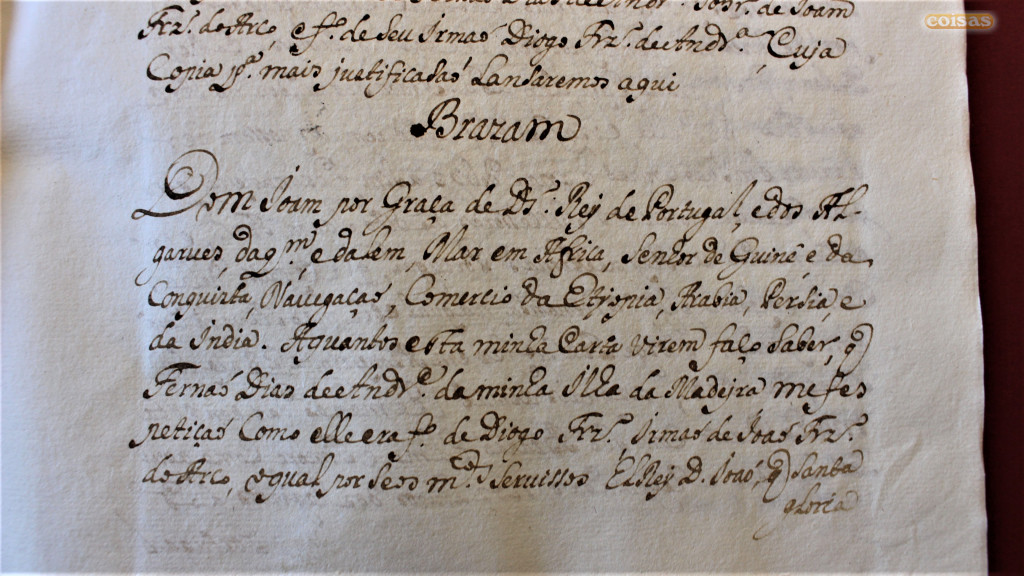 de Joam
Frz. de Arco, e fº. de seu Irmaó Diogo Frz. de Andrª. Cuja
Copia pª. mais justificasaó Lansaremos aqui
Brazam
Dom Joam por Graça de Ds. Rey de Portugal, e dos Al-
garves, daqm. e dalem, Mar em Africa, Senhor de Guiné e da
Conquista, Navegaçaó, Comercio da Ethiopia, Arabia, Persia, e
da India. Aquantos esta minha Carta virem faço saber, q
Fernaó Dias de Andre. da minha Ilha da Madeira me fes
petiçaó Como elle era fº. de Diogo Frz. Irmaó de Joaó Frz.
de Arco, e qual por seos m.ces servissos El Rey D. Joaó, q santa
gloria
coisas